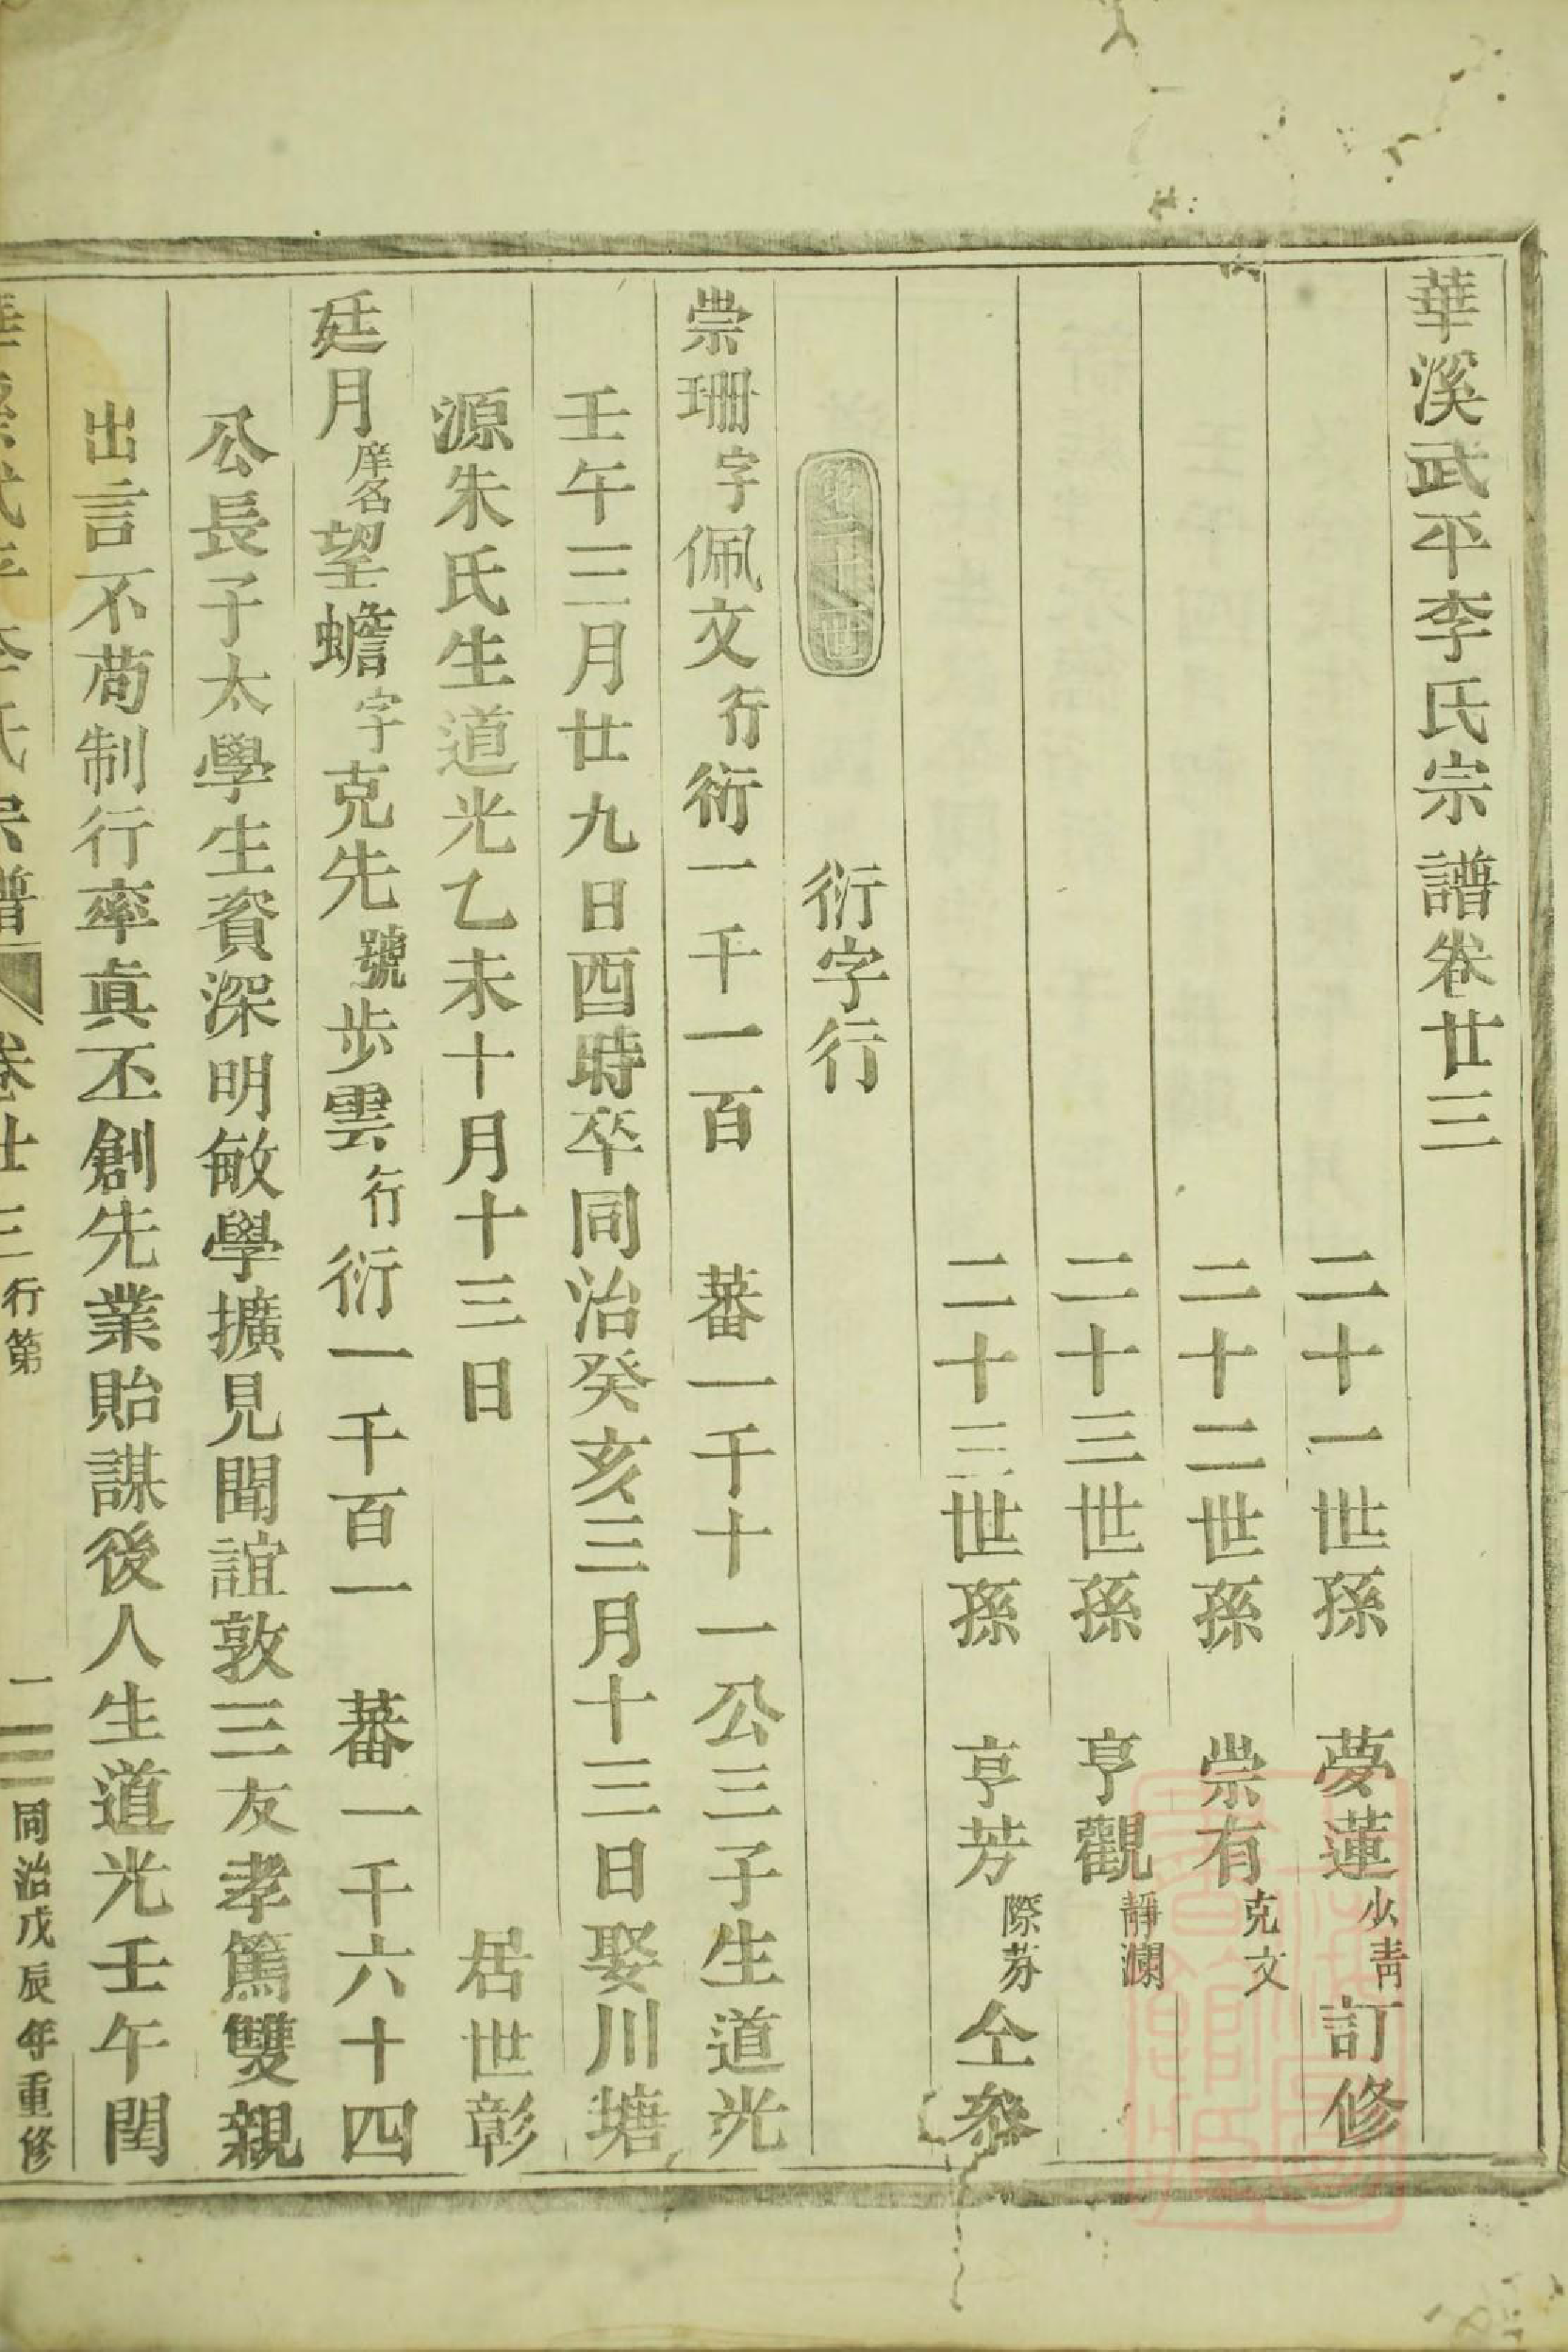 華溪武平李氏宗譜卷廿三
二十一世孫 夢蓮少青訂修
二十二世孫 崇有克文
二十三世孫 亨觀靜瀾
二十三世孫 亨芳際芬仝叅
第二十世 衍字行
崇珊字佩文行衍一千一百 蕃一千十一公三子生道光
壬午三月廿九日酉時卒同治癸亥三月十三日娶川塘
源朱氏生道光乙未十月十三日 居世彰
廷月庠名望蟾字克先號步雲行衍一千百一 蕃一千六十四
公長子太學生資深明敏學擴見聞誼敦三友孝篤雙親
出言不苟制行率真丕創先業貽謀後人生道光壬午閏
華溪武平李氏宗譜 卷廿三 行第 一 同治戊辰年重修